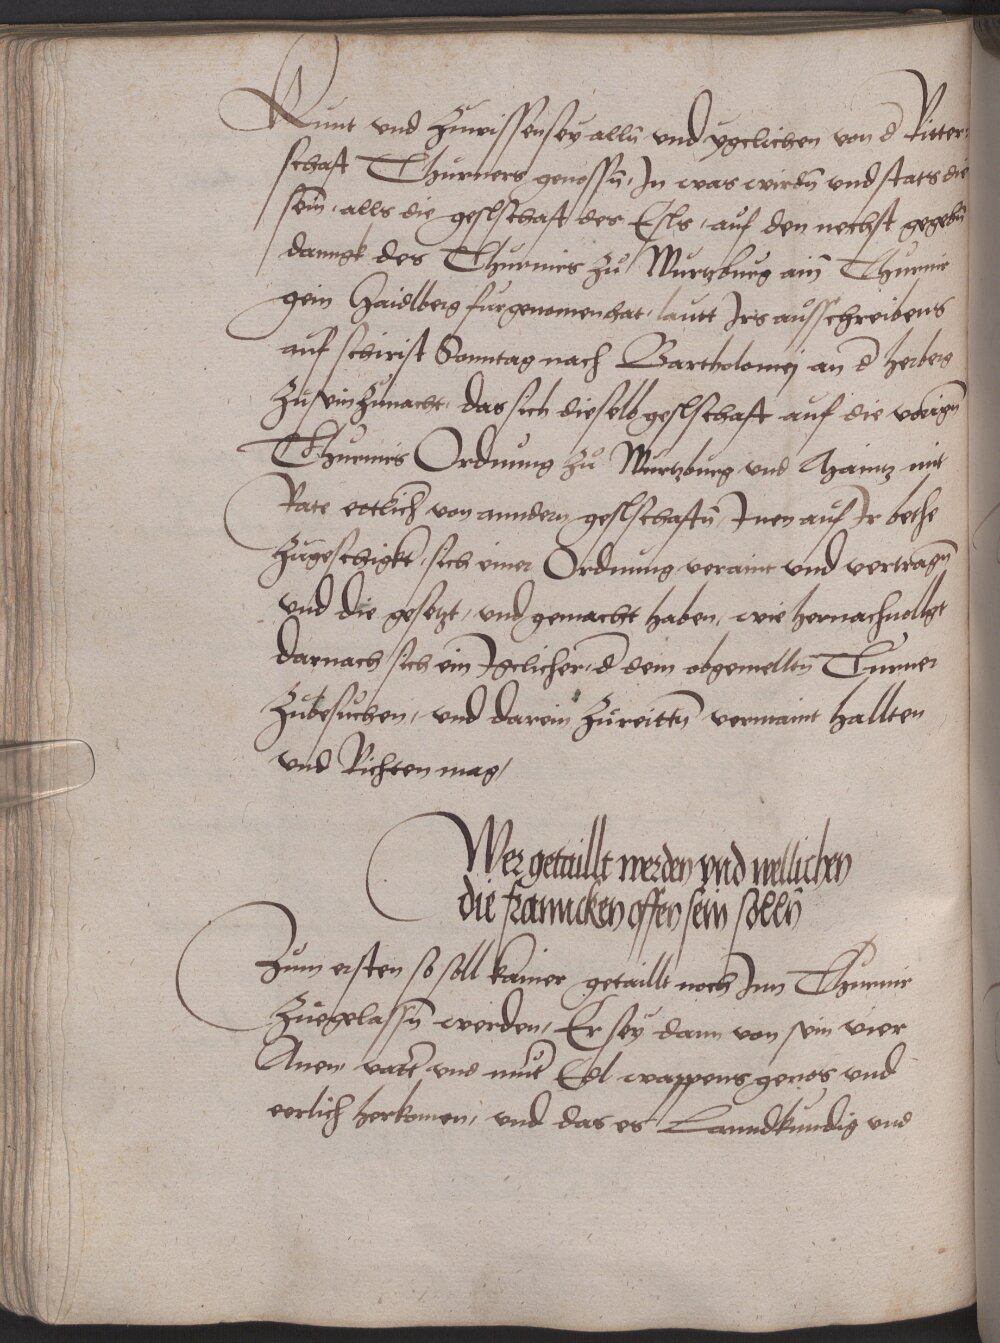 Kunt und Zuwissen sey allñ und ygclichen von d Ritter-
schafft Thurners genossñ, In was wirdñ und stats die
sein, alls die geslschaft des Esls, auf den nechst gegebñ
danngk des Thurnirs zů Wurtzburg ainñ Thurnir
gein Haidlberg fürgenomen hat, lautt Irs aůsschreibens
auf schirist Sonntag nach Bartholomej an d herberg
Zů sein Zunacht, das sich dieselb geslschaft auf die vorigñ
Thurnirs Ordnung zů Wurtzburg und Haintz mit
Rate ettlich von anndern geslschaftñ, Inen auf Ir bethe
Zugeschigkt, sich einer Ordnung veraint und vertragñ
und die gesetzt, und gemacht haben, wie hernachuolligt
darnach sich ein Igclicher, d dem obgemeltñ Turner
Zubesůchen, und darein Zureittñ vermaint hallten
und Richten mag,
Wer getaillt werden und wellichen
die frannckey offen sein sollñ
Zum ersten so soll kainer getaillt noch Inn Thurnir
Zuegelassñ werden, Er sey dann von sein vier
Anen, vatt und mutt Edl wappens genos und
eerlich herkomen, und das es Lanndkundig und